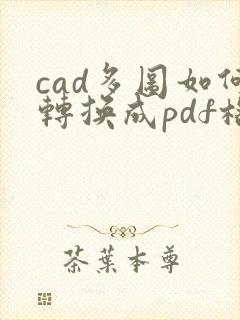 cad多圖如何
轉換成pdf格
茶葉本尊